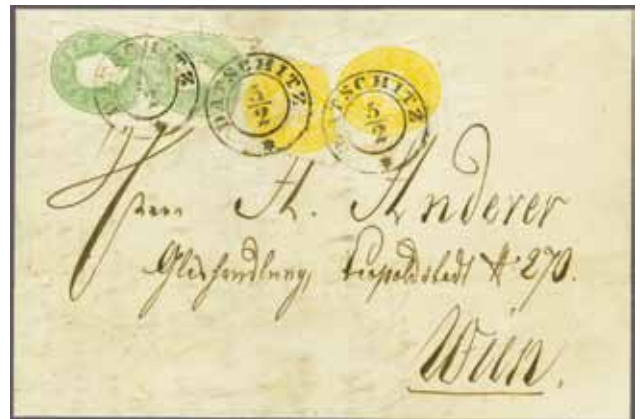 DATSCHITZ 5/2
DATSCHITZ 5/2
DATSCHITZ 5/2
Herrn A. Anderer
Glashandlung, Leopoldstadt # 270.
Wien.